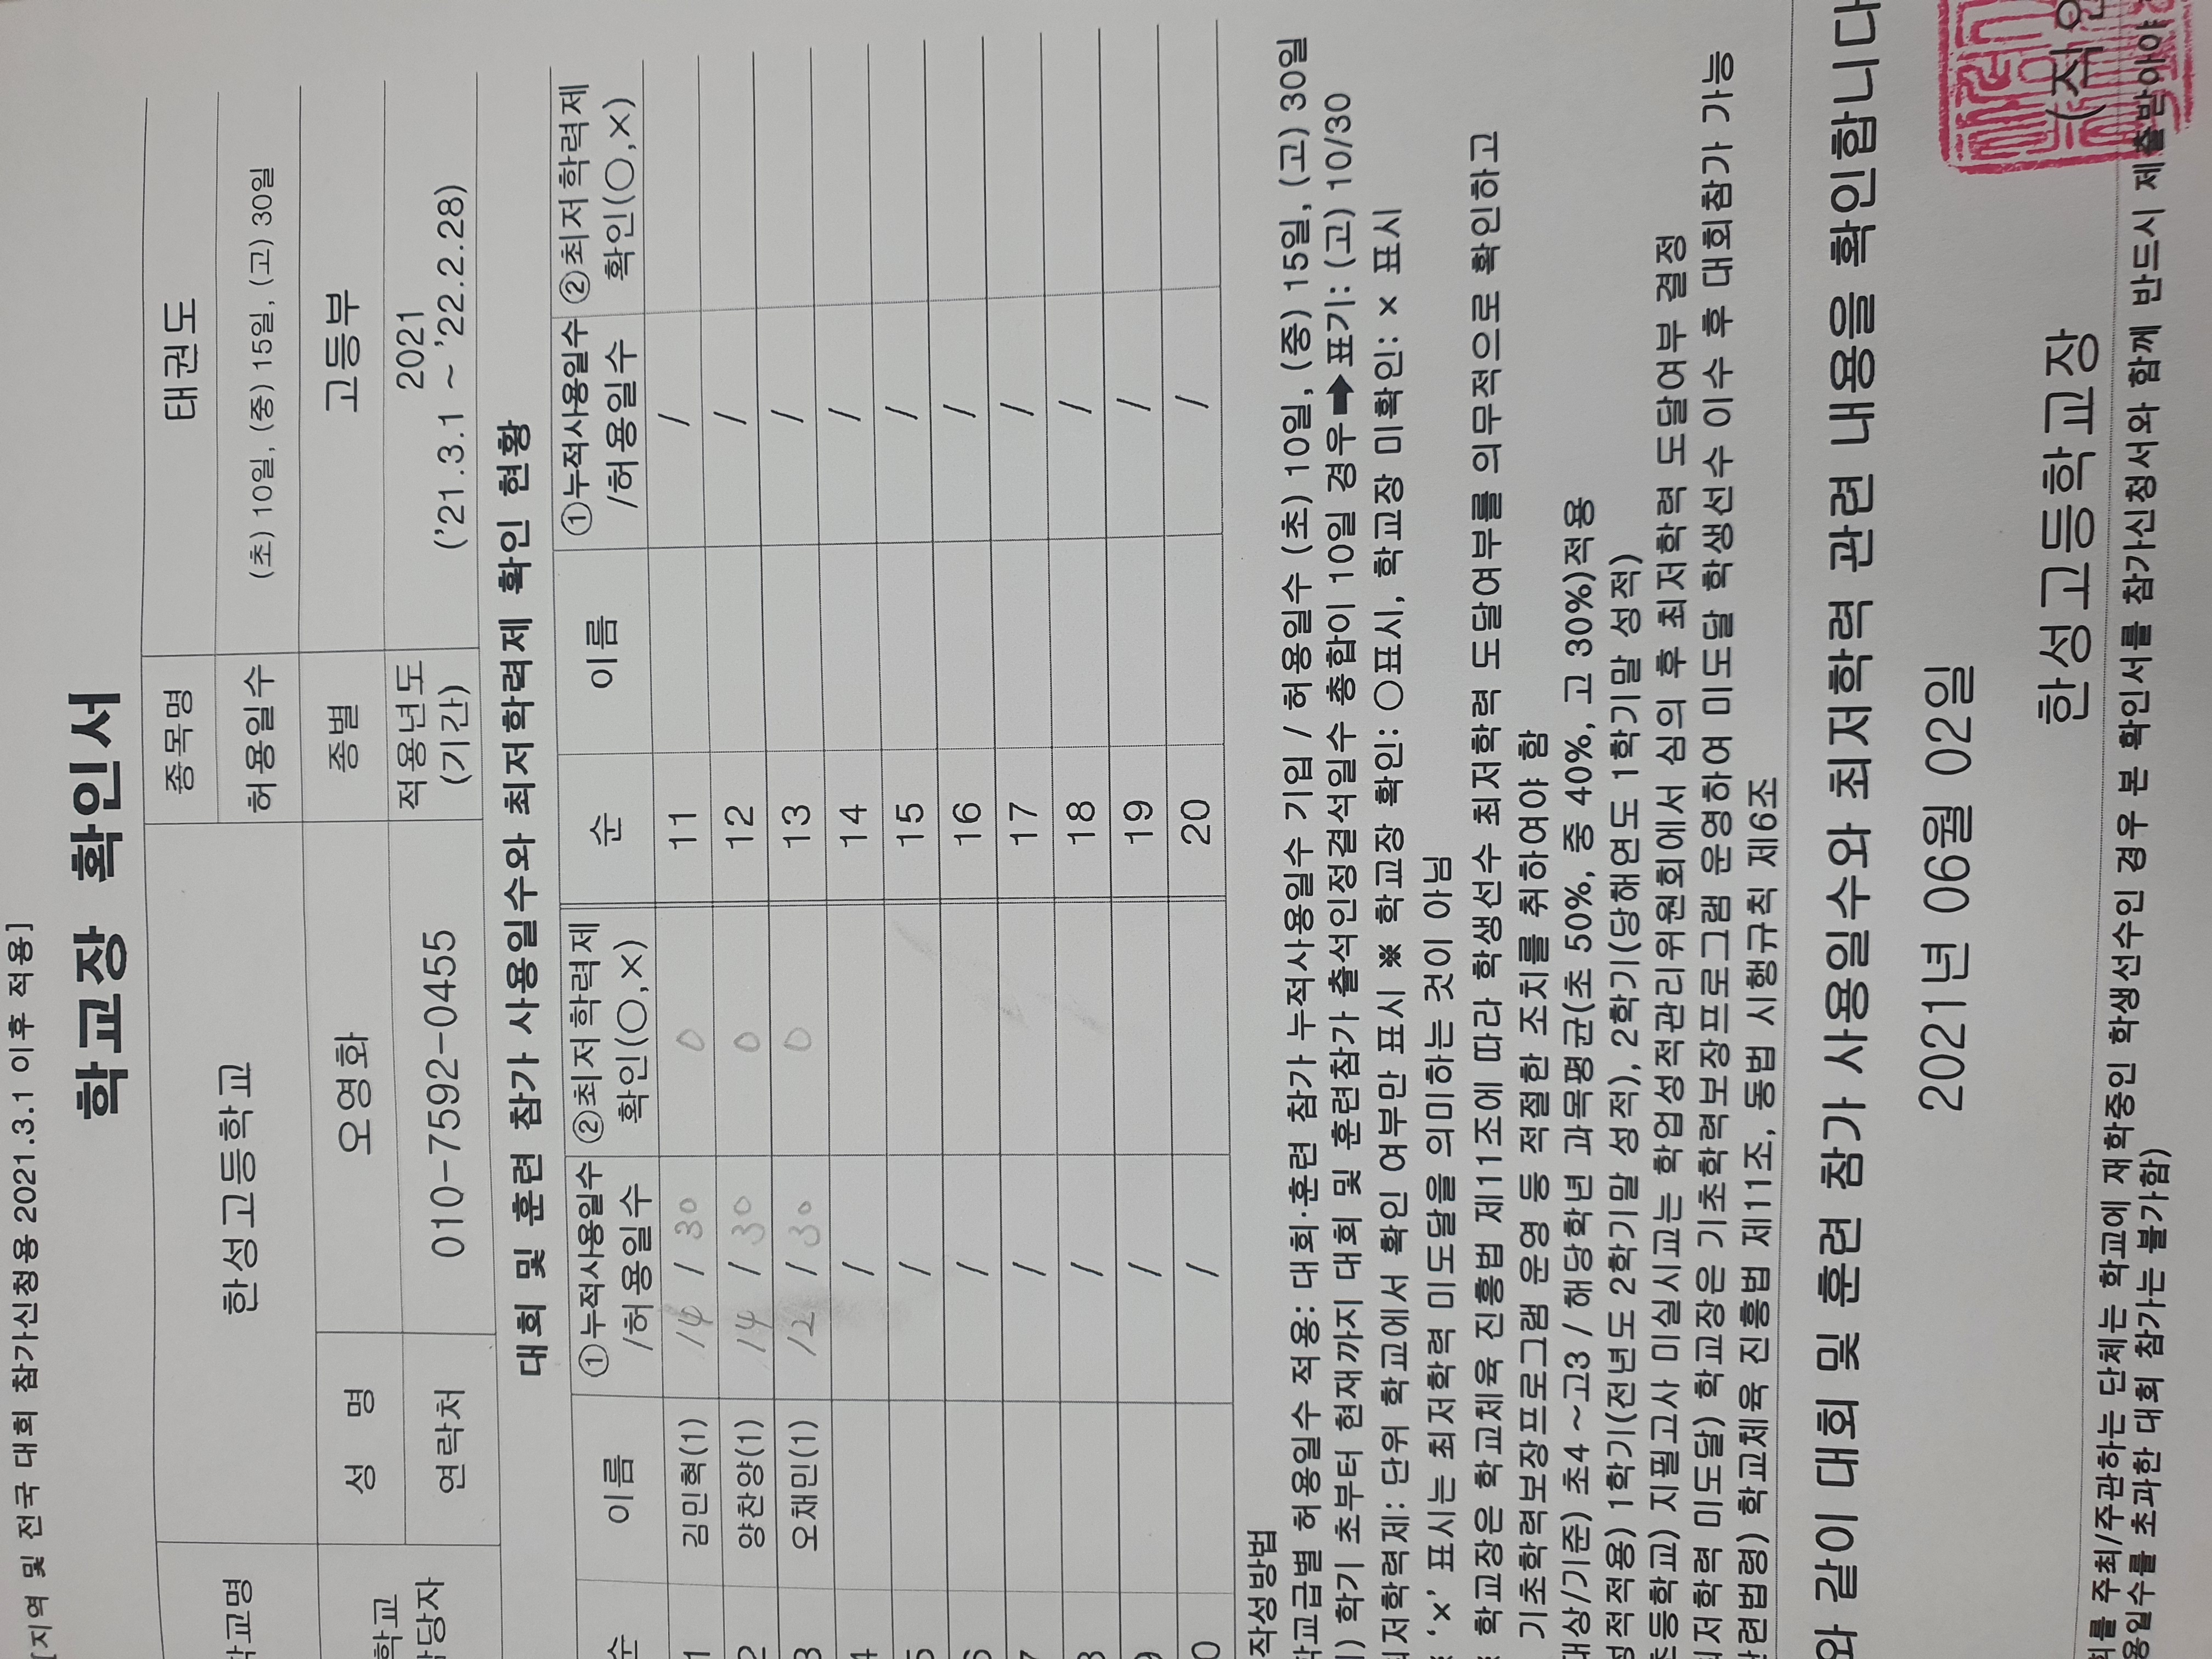 [지역 및 전국 대회 참가신청용 2021.3.1 이후 적용]
학교장 확인서
학교명 한성고등학교 종목명 태권도
허용일수 (초) 10일, (중) 15일, (고) 30일
학교 담당자 성 명 오영화 종별 고등부
연락처 010-7592-0455 적용년도 (기간) 2021 ('21.3.1 ~ '22.2.28)
대회 및 훈련 참가 사용일수와 최저학력제 확인 현황
순 이름 ①누적사용일수 ②최저학력제 순 이름 ①누적사용일수 ②최저학력제
/허용일수 확인(○,×) /허용일수 확인(○,×)
1 김민혁(1) 14 / 30 0 11 /
2 양찬양(1) 14 / 30 0 12 /
3 오채민(1) 12 / 30 0 13 /
4 / 14 /
5 / 15 /
6 / 16 /
7 / 17 /
8 / 18 /
9 / 19 /
0 / 20 /
작성방법
학교급별 허용일수 적용: 대회·훈련 참가 누적사용일수 기입 / 허용일수 (초) 10일, (중) 15일, (고) 30일
) 학기 초부터 현재까지 대회 및 훈련참가 출석인정결석일수 총합이 10일 경우➡표기: (고) 10/30
최저학력제: 단위 학교에서 확인 여부만 표시 ※ 학교장 확인: ○표시, 학교장 미확인: × 표시
'×' 표시는 최저학력 미도달을 의미하는 것이 아님
학교장은 학교체육 진흥법 제11조에 따라 학생선수 최저학력 도달여부를 의무적으로 확인하고
기초학력보장프로그램 운영 등 적절한 조치를 취하여야 함
대상/기준) 초4 ~고3 / 해당학년 과목평균(초 50%, 중 40%, 고 30%)적용
성적적용) 1학기(전년도 2학기말 성적), 2학기(당해연도 1학기말 성적)
초등학교) 지필고사 미실시교는 학업성적관리위원회에서 심의 후 최저학력 도달여부 결정
최저학력 미도달) 학교장은 기초학력보장프로그램 운영하여 미도달 학생선수 이수 후 대회참가 가능
관련법령) 학교체육 진흥법 제11조, 동법 시행규칙 제6조
와 같이 대회 및 훈련 참가 사용일수와 최저학력 관련 내용을 확인합니다
2021년 06월 02일
한성고등학교장 (직인
회를 주최/주관하는 단체는 학교에 재학중인 학생선수인 경우 본 확인서를 참가신청서와 함께 반드시 제출받아야
용일수를 초과한 대회 참가는 불가함)